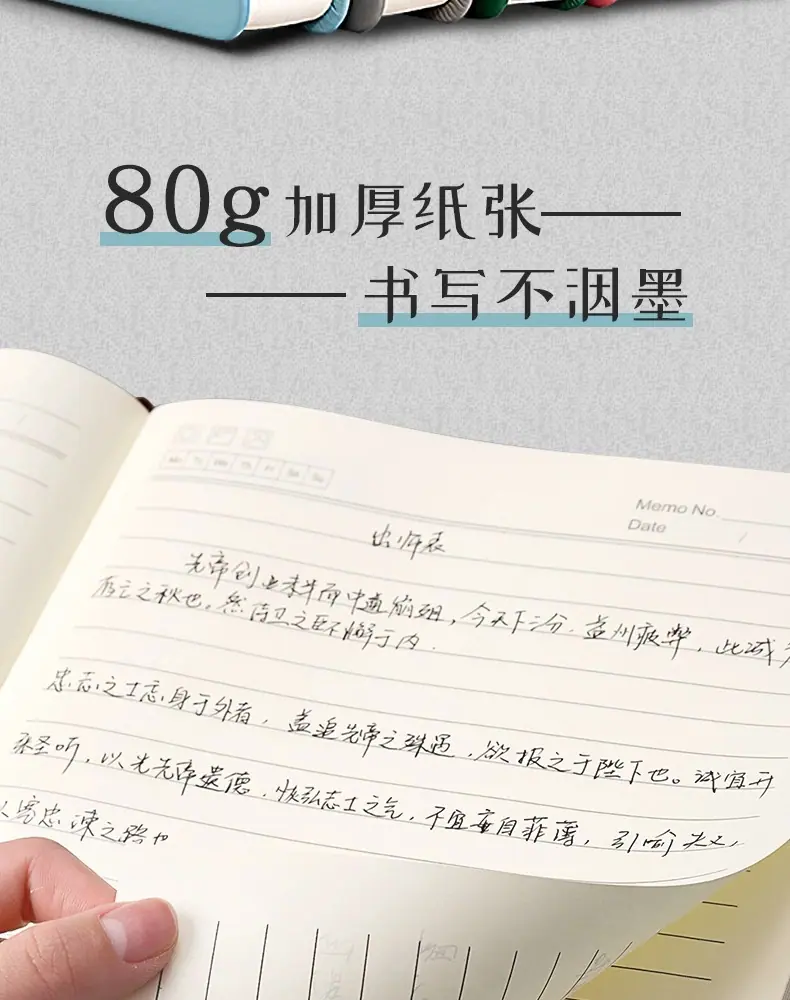 80g加厚纸张——
——书写不洇墨
Memo No.
Date
出师表
先帝创业未半而中道崩殂，今天下三分．益州疲弊，此诚
存亡之秋也。然侍卫之臣不懈于内．
忠志之士忘身于外者，盖追先帝之殊遇，欲报之于陛下也。诚宜开
张圣听，以光先帝遗德，恢弘志士之气，不宜妄自菲薄，引喻失义，
以塞忠谏之路也